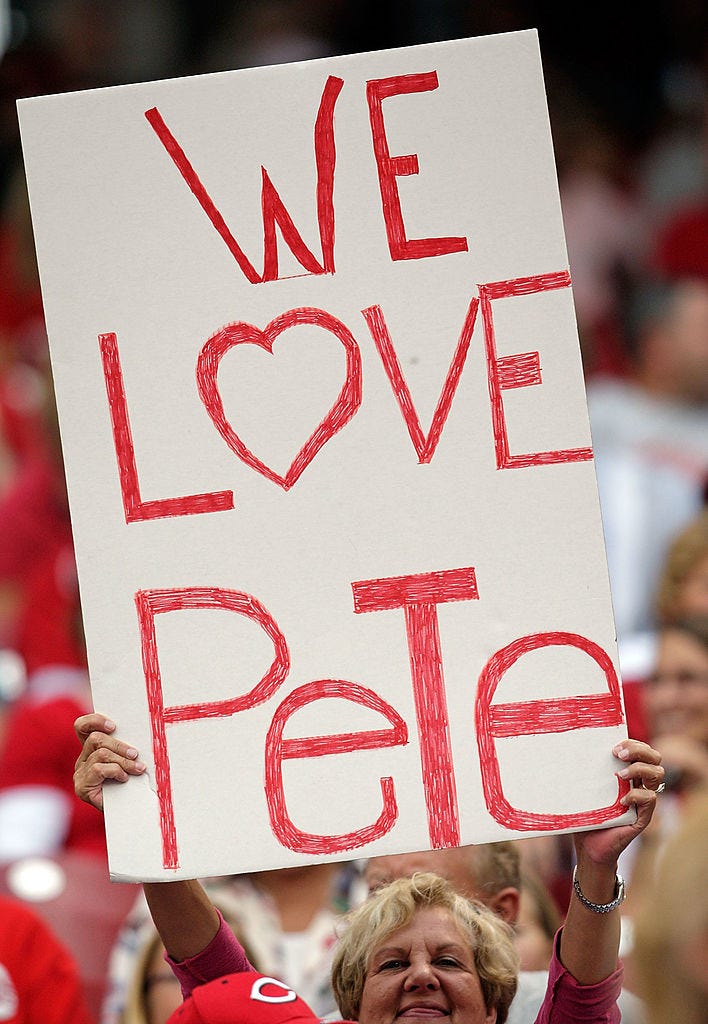 WE
LOVE
PeTe
C